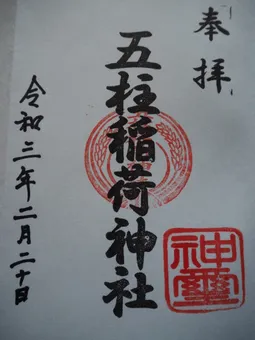 奉拝
五柱稲荷神社
令和三年二月二十日
神璽